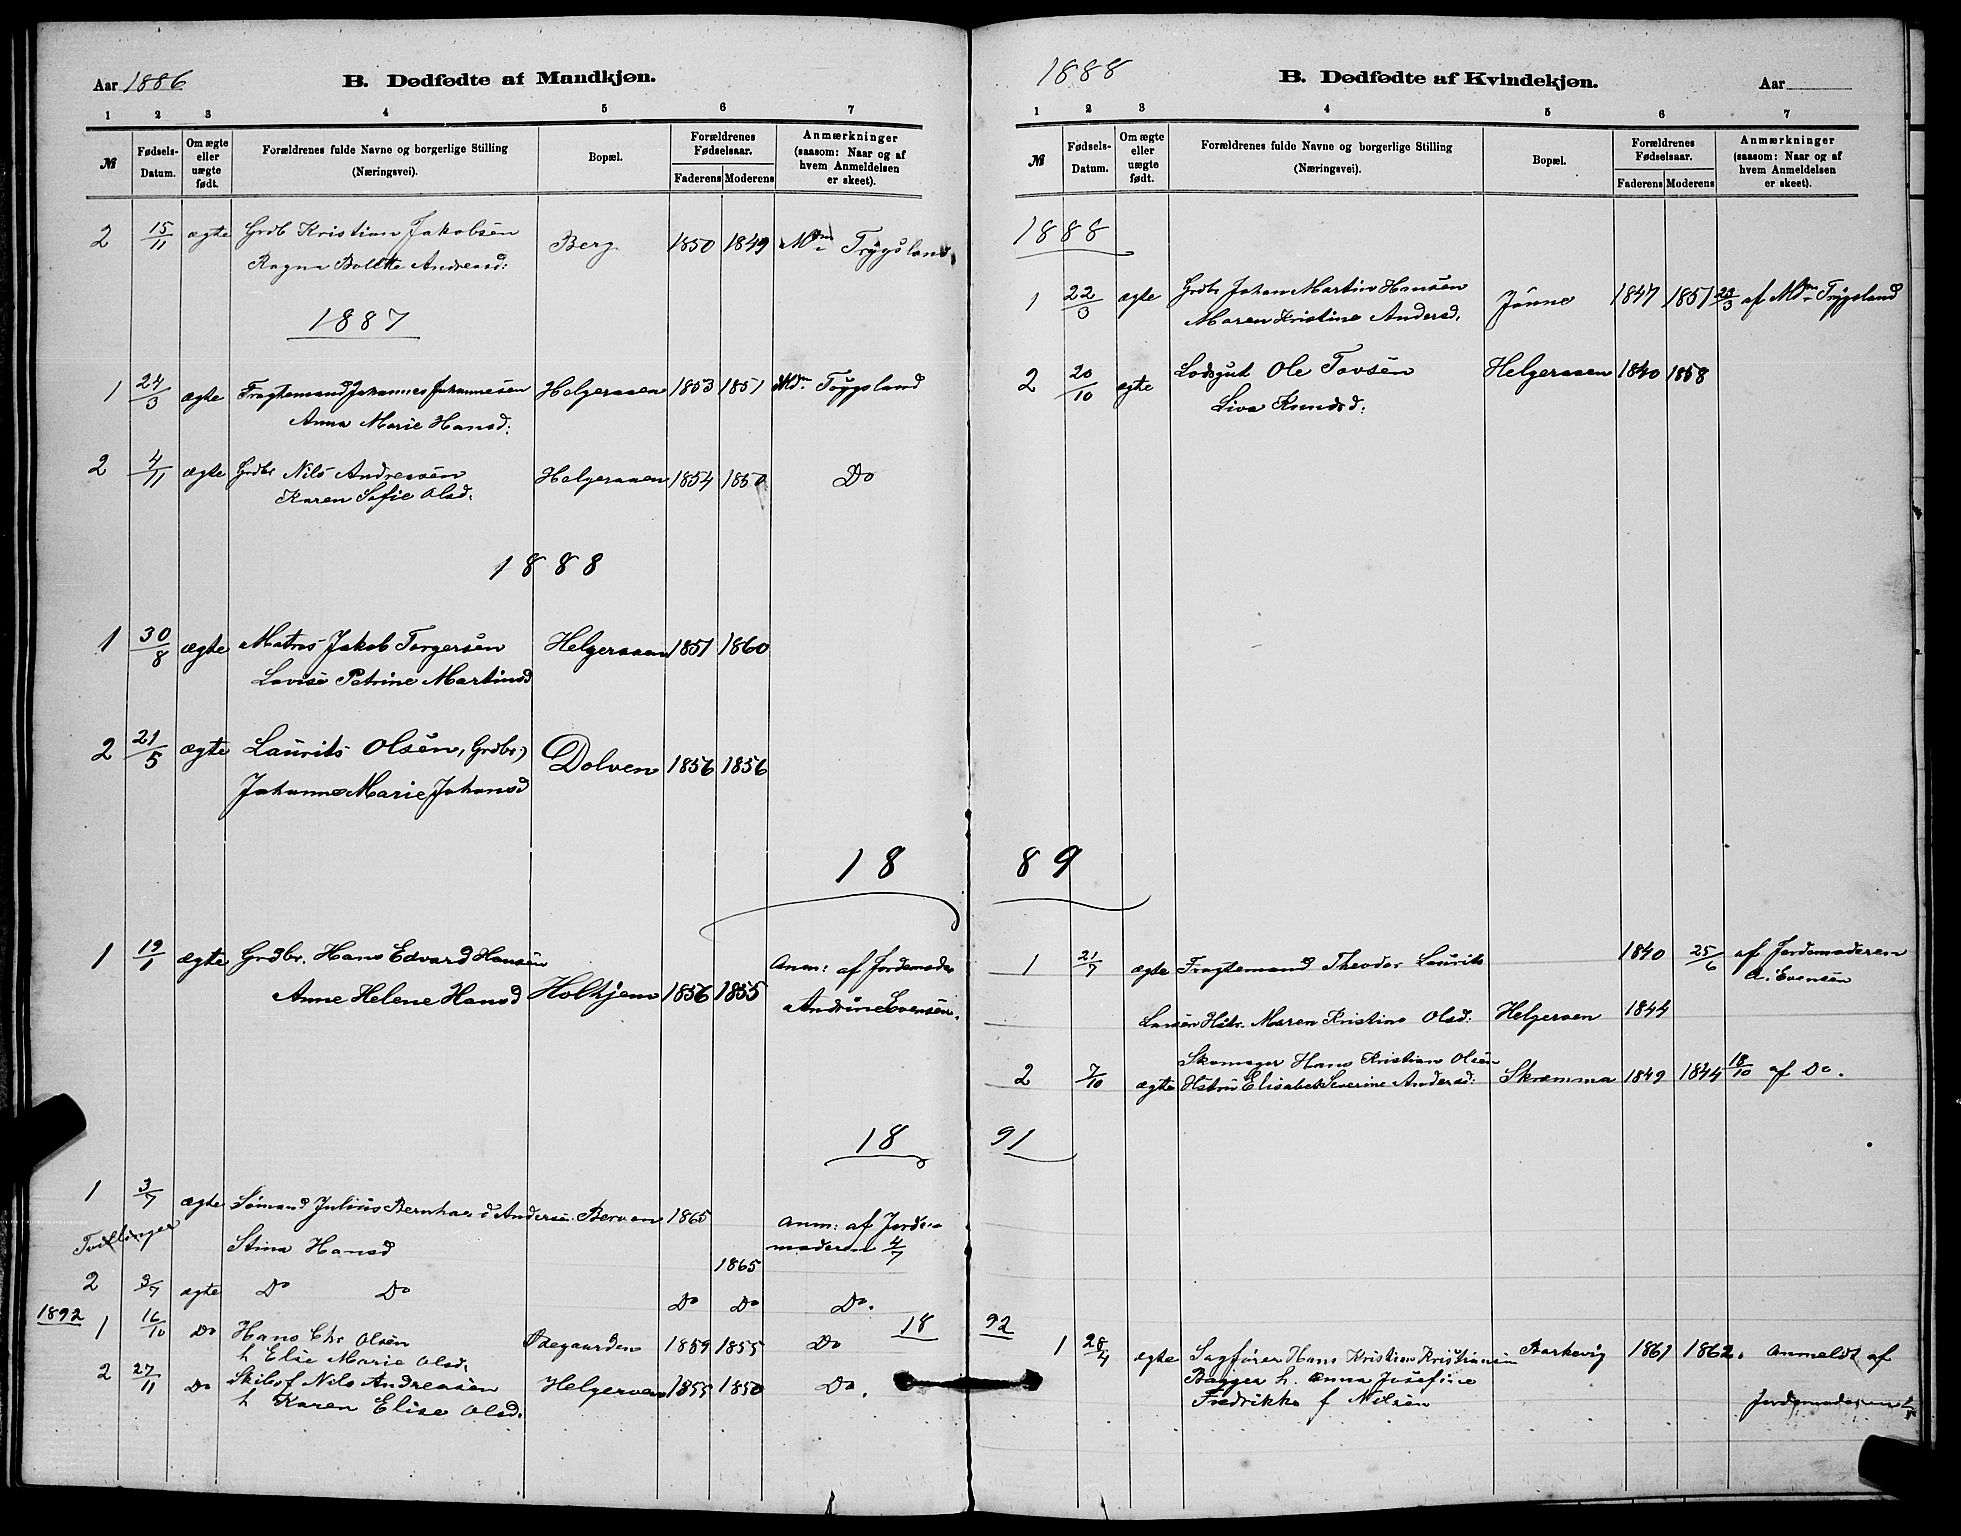 Aar 1886
B. Dødfødte af Mandkjøn.
1 2 3 4 5 6 7
№
Fødsels-Datum.
Om ægte eller uægte født.
Forældrenes fulde Navne og borgerlige Stilling (Næringsvei).
Bopæl.
Forældrenes Fødselsaar.
Faderens Moderens
Anmærkninger (saasom: Naar og af hvem Anmeldelsen er skeet).
2 15/11 ægte Grdb Kristian Jakobsen Berg 1850 1849 Mdm Trygsland
Ragna Bolette Andreasd:
1887
1 24/3 ægte Fragtemand Johannes Johannesen Helgeraaen 1853 1851 Mdm Trygsland
Anna Marie Hansd:
2 4/11 ægte Grdbr Nils Andreasen Helgeraaen 1854 1850 Do
Karen Sofie Olsd:
1888
1 30/8 ægte Matros Jakob Torgersen Helgeraaen 1851 1860
Lovise Petrine Martinsd
2 21/5 ægte Laurits Olsen, Grdbr, Dolven 1856 1856
Johanne Marie Johansd
18
1 19/1 ægte Grdbr. Hans Edvard Hansen Anm: af Jordemoder
Anne Helene Hansd Holhjem 1856 1855 Andrine Evensen.
18
1 3/7 ægte Sømand Julius Bernhard Andersen Berven 1865 Anm: af Jorde-
Tvillinger Stina Hansd 1865 moderen 4/7
2 3/7 ægte Do Do Do Do Do.
1892 18
1 16/10 Do Hans Chr Olsen Ødegaarden 1859 1855 Do
h Else Marie Olsd.
2 27/11 Do Skibsf Nils Andreasen Helgeroen 1855 1850 Do.
h Karen Elise Olsd.
1888
B. Dødfødte af Kvindekjøn.
Aar
1 2 3 4 5 6 7
№
Fødsels-Datum.
Om ægte eller uægte født.
Forældrenes fulde Navne og borgerlige Stilling (Næringsvei).
Bopæl.
Forældrenes Fødselsaar.
Faderens Moderens
Anmærkninger (saasom: Naar og af hvem Anmeldelsen er skeet).
1888
1 22/3 ægte Grdbr Johan Martin Hansen Jønne 1847 1851 23/3 af Mdm Trygsland
Maren Kristine Andersd.
2 20/10 ægte Lodsgut Ole Tovsen Helgeraaen 1840 1858
Live Knudsd:
89
1 21/7 ægte Fragtemand Theodor Laurits 1840 25/6 af Jordemoderen
A. Evensen
Larsen Hstr. Maren Kristine Olsd: Helgeroen 1844
Skomager Hans Kristian Olsen
2 7/10 ægte Hstru Elisabet Severine Andersd: Skramma 1849 1844 18/10 af Do.
91
92
1 28/4 ægte Sagfører Hans Kristian Kristiansen Barkevig 1861 1862. Anmeldt af
Bagger h. Anna Josefine
Fredrikke f Nilsen Jordemoderen